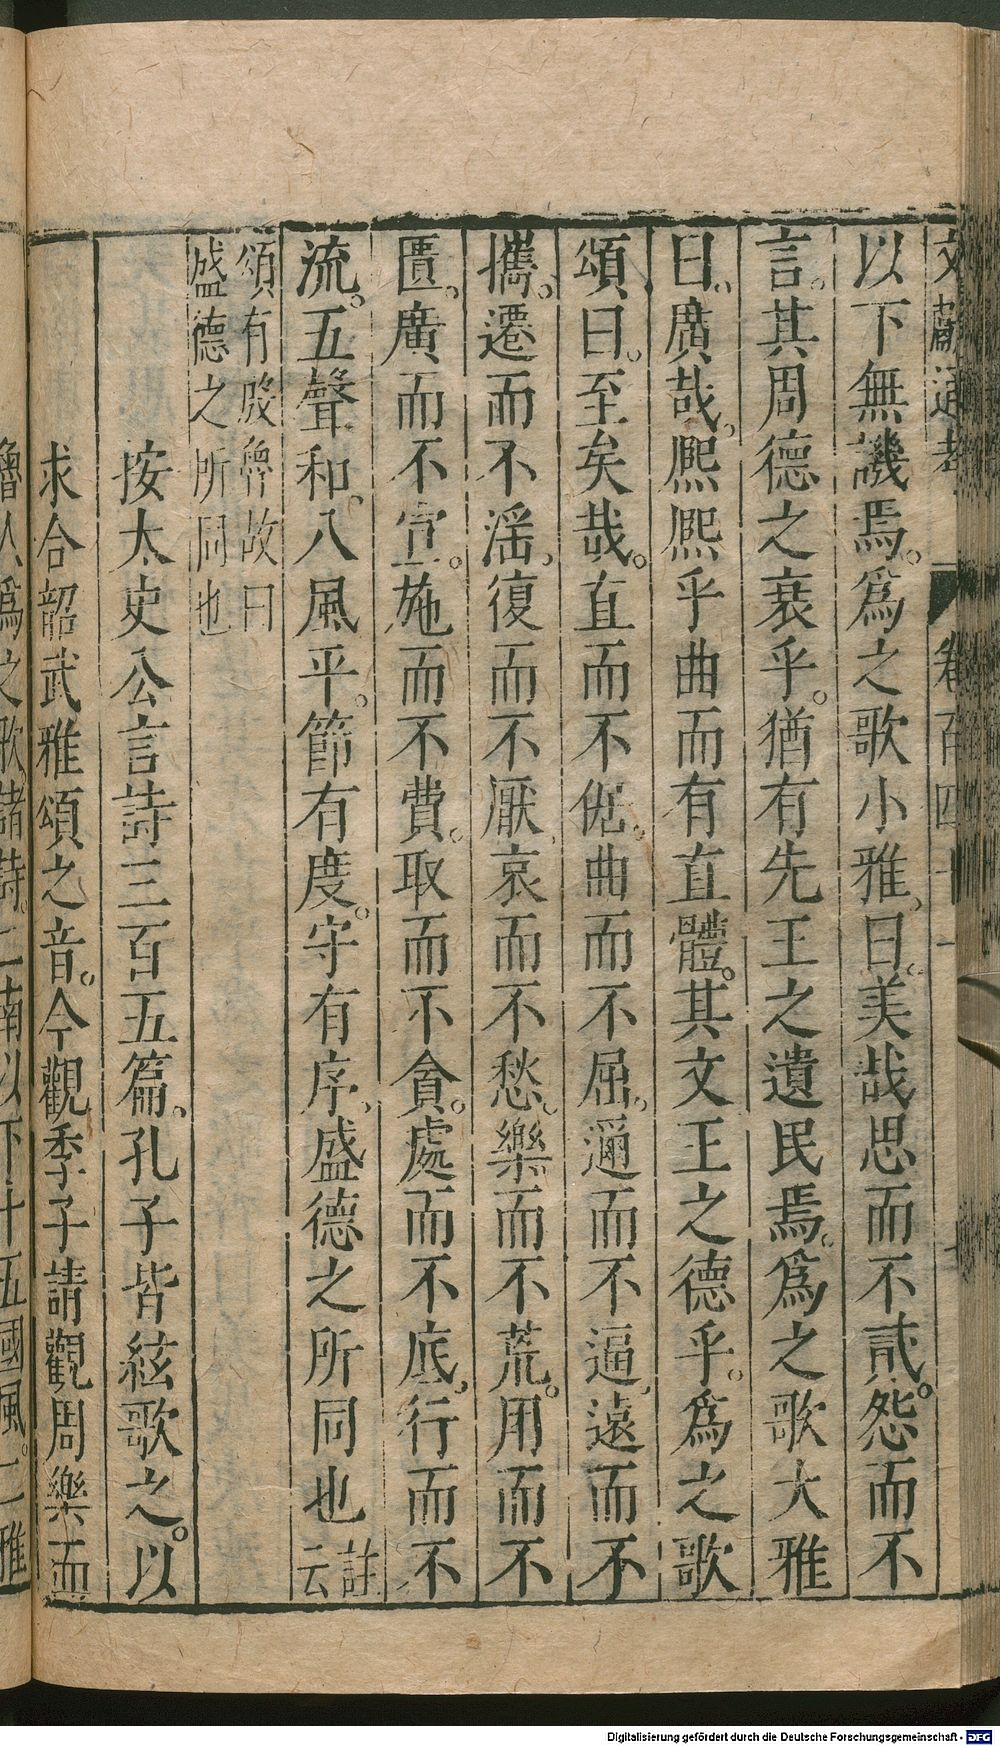 文獻通考 卷百四十一
以下無譏焉。爲之歌小雅、曰。美哉思而不貳。怨而不
言。其周德之衰乎。猶有先王之遺民焉。爲之歌大雅
曰。廣哉。熈熈乎曲而有直體。其文王之德乎。爲之歌
頌曰。至矣哉。直而不倨。曲而不屈。邇而不逼、遠而不
攜。遷而不滛、復而不厭、哀而不愁。樂而不荒。用而不
匱。廣而不宣。施而不費。取而不貪。處而不底、行而不
流。五聲和。八風平。節有度。守有序、盛德之所同也 註云
頌有殷魯故曰
盛德之所同也
按太史公言詩三百五篇、孔子皆絃歌之。以
求合韶武雅頌之音。今觀季子請觀周樂而
魯人爲之歌諸詩。二南以下十五國風。二雅
Digitalisierung gefördert durch die Deutsche Forschungsgemeinschaft - DFG